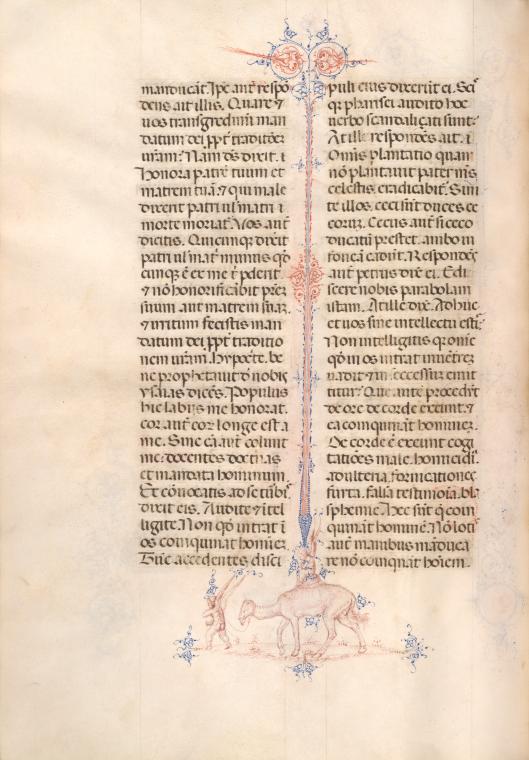 manducāt. Ipe aut respō
dens ait illis. Quare ⁊
uos transgredimī man
datum dei ppt traditōez
uram: Nam ds dixit. i
honora patrē tuum et
matrem tuā. ⁊ qui male
dixerit patri ul matri i
morte moriat. Uos aut
dicitis. Quicunque dixit
patri ul matri munus qd
cunque ē ex me t pderit.
⁊ nō honorificabit prez
suum aut matrem suaz.
⁊ irritum fecistis man
datum dei ppt traditio
nem uram. Hypocte. be
ne prophetauit d nobis
ysaias dices. Populus
hic labijs me honorat.
cor aut eor longe est a
me. Sine cā aut colunt
me: docentes doctnas
et mandata hominum.
Et conuocatis ad se turbis
dixit eis. Audite ⁊ itel
ligite. Non qd intrat i
os coinquinat homiez.
Tuc accedentes disci
puli eius dixerūt ei. Scis
qr pharisei audito hoc
uerbo scandalizati sunt:
At ille respondēs ait. i
Omīs plantatio quam
nō plantauit pater mis
celestis. eradicabit. Sini
te illos. ceci sūt duces ce
corum. Cecus aut si ceco
ducatū prestet. ambo in
foueā cadūt. Respondes
aut petrus dixē ei. Edi
scere nobis parabolam
istam. At ille dix. Adhuc
et uos sine intellectu estis:
Non intelligitis qr omne
qd in os intrat in uētrez
uadit ⁊ in secessus emit
titur: Que aute procedūt
de ore de corde exeunt. ⁊
ea coinquinat hominez.
De corde ē exeunt cogi
tatiōes male. homicidia.
adulteria. fornicationes
furta. falsa testimoia. bla
sphemie. Hec sūt q coin
quinat hominē. Nō lotis
aut manibus māduca
re nō coinqnat hoiem.